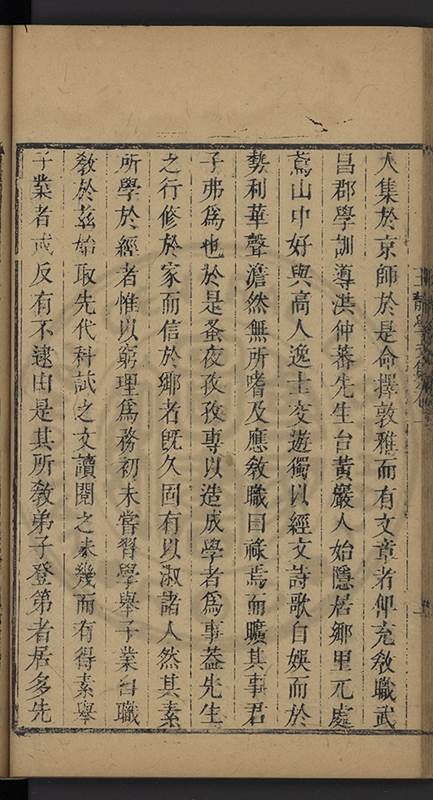 人集於京師於是命擇敦雅而有文章者俾充敎職武
昌郡學訓導洪仲蕃先生台黃巖人始隱居鄉里兀處
鳶山中好與高人逸士交遊獨以經文詩歌自娛而於
勢利華聲澹然無所嗜及應敎職曰祿焉而曠其事君
子弗爲也於是蚤夜孜孜專以造成學者爲事葢先生
之行修於家而信於鄉者旣久固有以淑諸人然其素
所學於經者惟以窮理爲務初未嘗習學舉子業曰職
敎於兹始取先代科試之文讀閱之未幾而有得素舉
子業者或反有不逮由是其所敎弟子登第者居多先